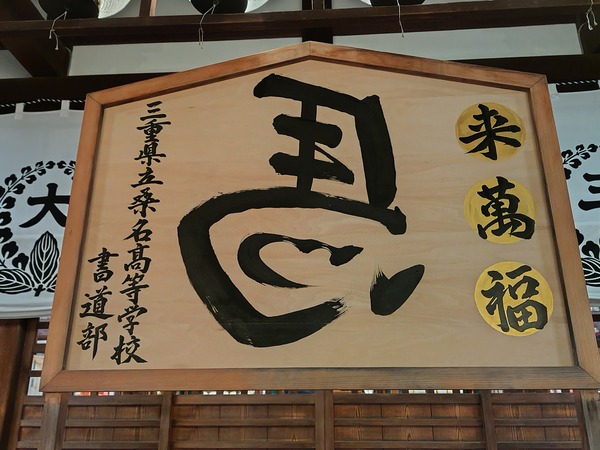 来萬福
三重県立桑名高等学校
書道部
大
三